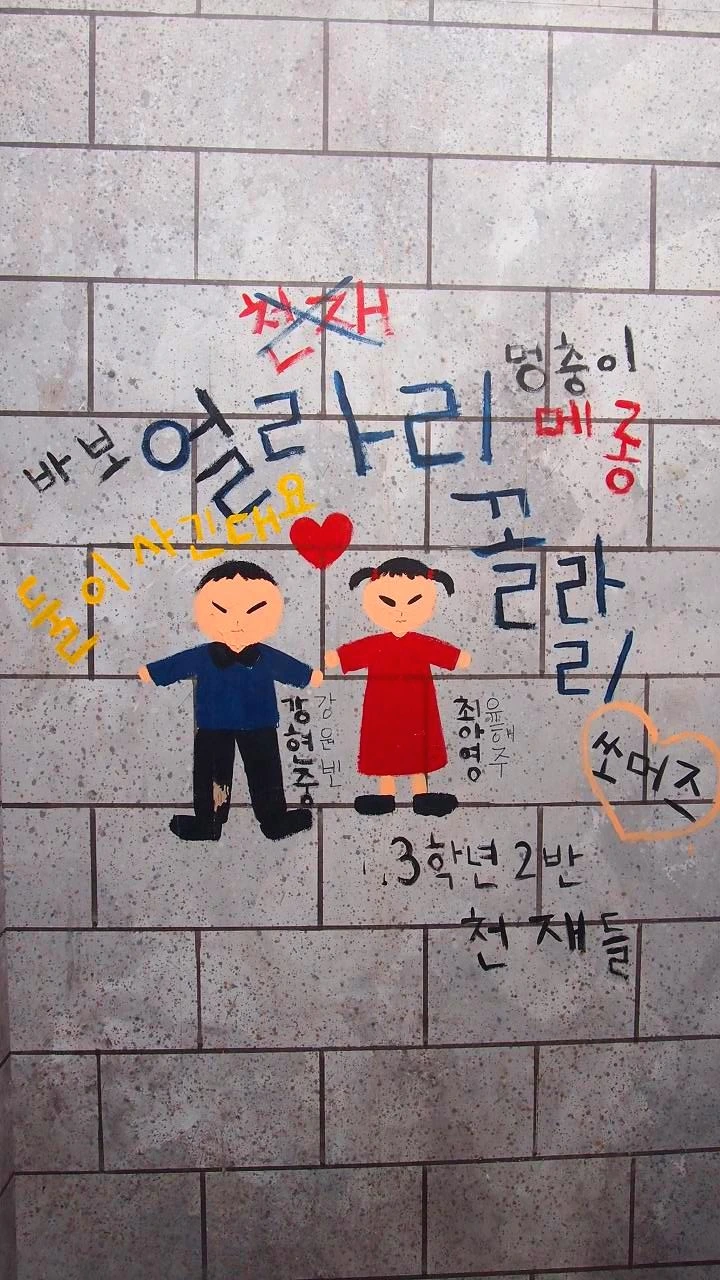 천재
멍충이
메롱
바보
얼라리
꼴라리
둘이 사긴대요
강현중
강원빈
최아영
윤해주
쏘머즈
3학년 2반
천재들